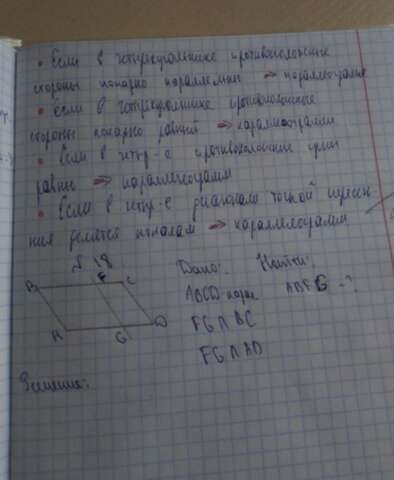 • Если в четырехугольнике противоположные
стороны попарно параллельны => параллелограмм
• если в четырехугольнике противоположные
стороны попарно равны => параллелограмм
• Если в четыр-е противоположные углы
равны => параллелограмм
• Если в четыр-е диагонали точкой пересе-
ния делятся пополам => параллелограмм
№ 18
Дано: Найти:
B F C
ABCD ABFG - ?
A G D
FG ∩ BC
FG ∩ AD
Решение: